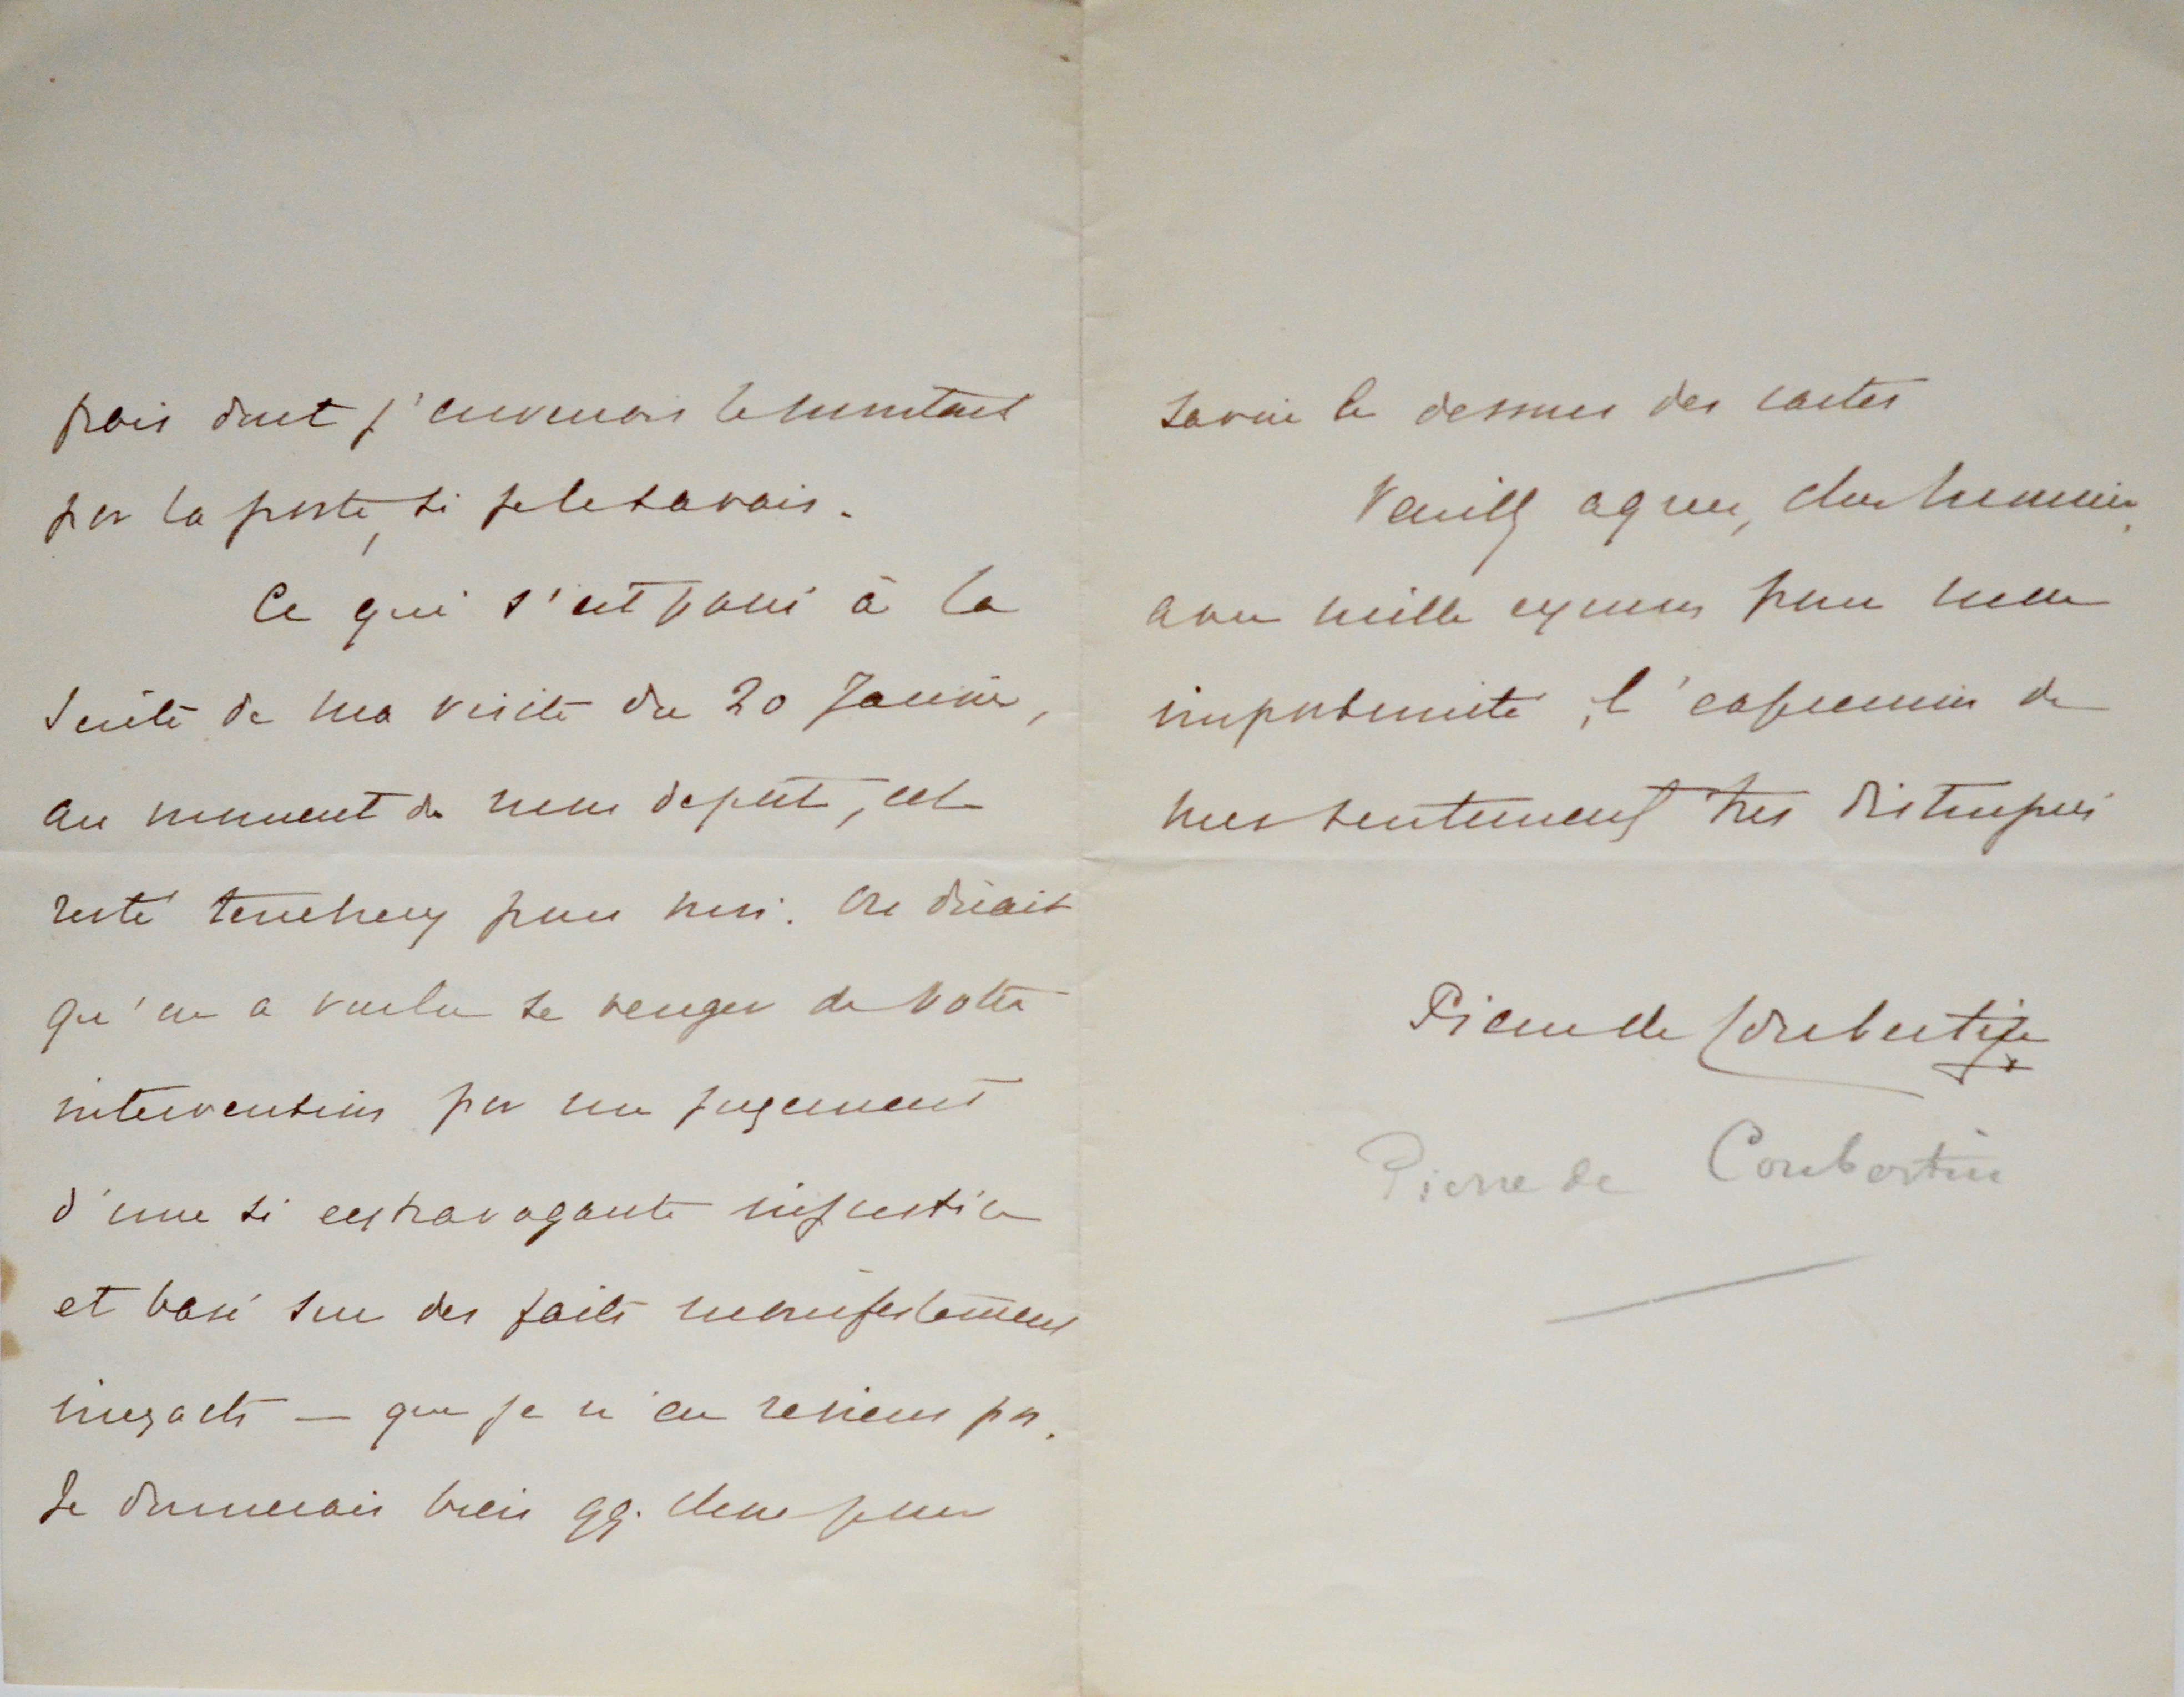 frais dont j'enverrais le montant
par la poste, si je le savais.
Ce qui s'est passé à la
suite de ma visite du 20 Janvier,
au moment de mon départ, est
resté ténébreux pour moi. On dirait
qu'on a voulu se venger de votre
intervention par un jugement
d'une si extravagante injustice
et basé sur des faits manifestement
inexacts — que je n'en reviens pas.
Je donnerais bien qq. chose pour
savoir le dessous des cartes
Veuillez agréer, cher Monsieur,
avec mille excuses pour mon
importunité, l'expression de
mes sentiments très distingués
Pierre de Coubertin
Pierre de Coubertin